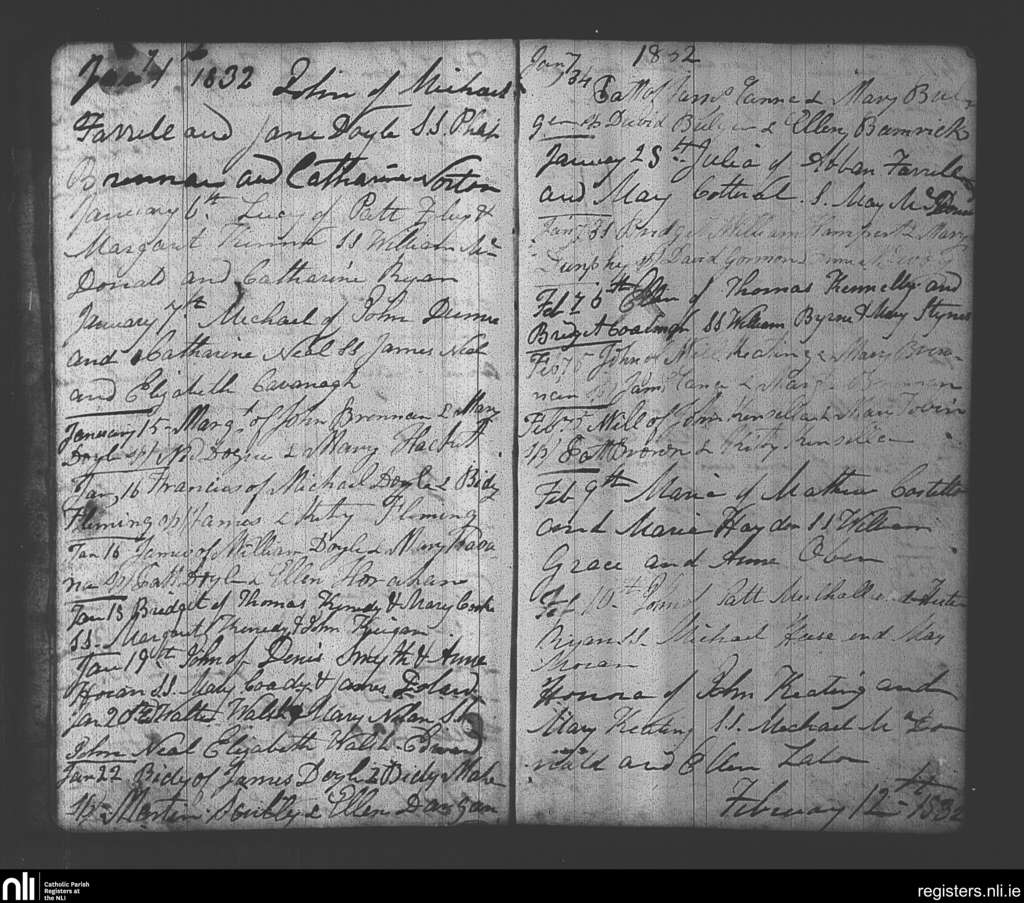 Jany 1st 1832 John of Michael
Farrell and Jane Doyle S.S. Phil
Brennan and Catharine Norton
January 6th Lucy of Patt &
Margaret SS William Mc
Donald and Catharine Ryan
January 7th Michael of John Dunne
and Catharine Neal SS James Neal
and Elizabeth Cavanagh
January 15 Margt of John Brennan & Mary
Doyle sp & Mary Hackett
Jany 16 Francis of Michael Doyle & Bidy
Fleming sp James & Kitty Fleming
Jan 16 James of William Doyle & Mary Kava
na sp Patt Doyle & Ellen Horahan
Jan 18 Bridget of Thomas Kenedy & Mary Cooke
SS. Margaret Kenedy & John
Jan 19th John of Denis Smyth & Anne
Horan SS. Mary Coady & James
Jan 20th Walter Walsh & Mary Nolan SS
John Neal Elizabeth Walsh
Jan 22 Bidy of James Doyle & Bidy
sp Martin & Ellen
Jany 1832
Patt of James & Mary Bul
ger sp David Bulger & Ellen Bamrick
January 25th Julia of Abban Farrell
and Mary Cotteral. S. Mary Mc
Bridget William & Mary
Dunphy sp David Gorman
Feb 5th Ellen of Thomas Kennelly and
Bridget SS William Byrne & Mary
Feb 5 John of Mill Keating & Mary Bren-
nan sp James & Margt Brennan
Feb 5 Mill of John Kinsellah & Mary Tobin
sp Patt Brown & Kitty
Feb 9th Maria of Mathew Costello
and Maria Hayden SS William
Grace and Anne Owen
Feb 10th John of Patt &
Ryan SS. Michael and May
Moran
Honora of John Keating and
Mary Keating S.S. Michael McDo
nald and Ellen Lalor
February 12th 1832
nli
Catholic Parish
Registers at
the NLI
registers.nli.ie